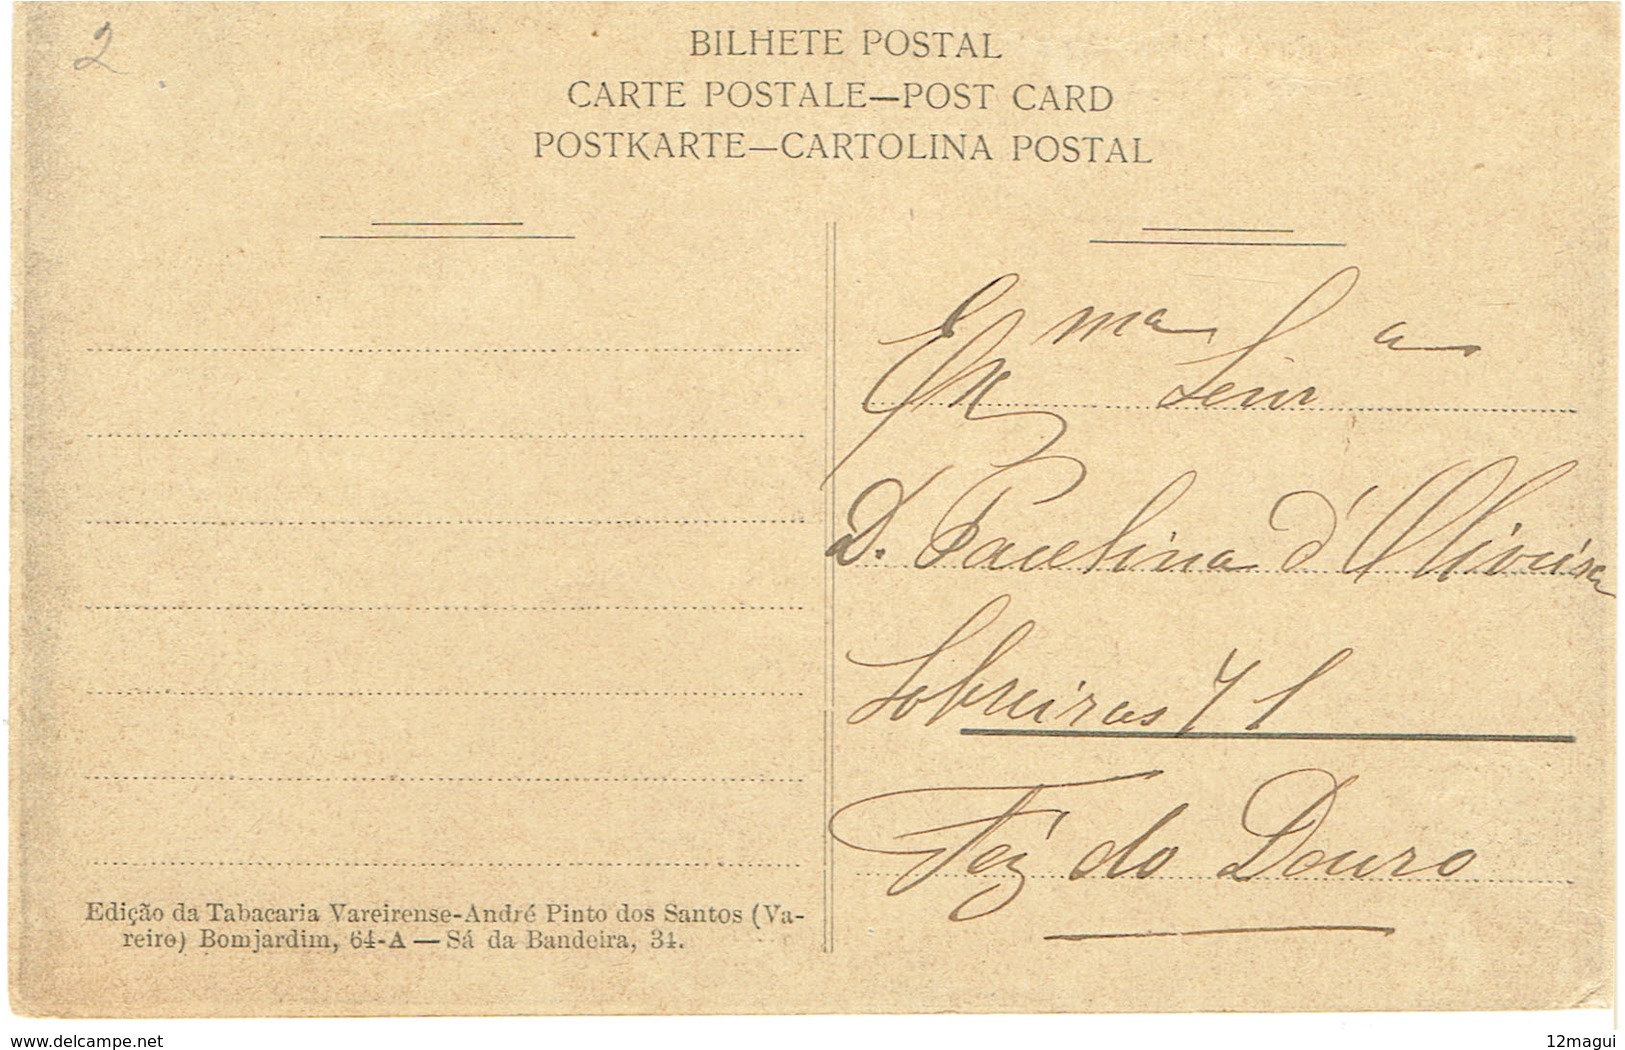 2
BILHETE POSTAL
CARTE POSTALE—POST CARD
POSTKARTE—CARTOLINA POSTAL
Ex ma Senr a
D. Paulina d'Oliveira
Sobreiras 71
Foz do Douro
Edição da Tabacaria Vareirense-André Pinto dos Santos (Va-
reiro) Bomjardim, 64-A — Sá da Bandeira, 34.
www.delcampe.net
12magui